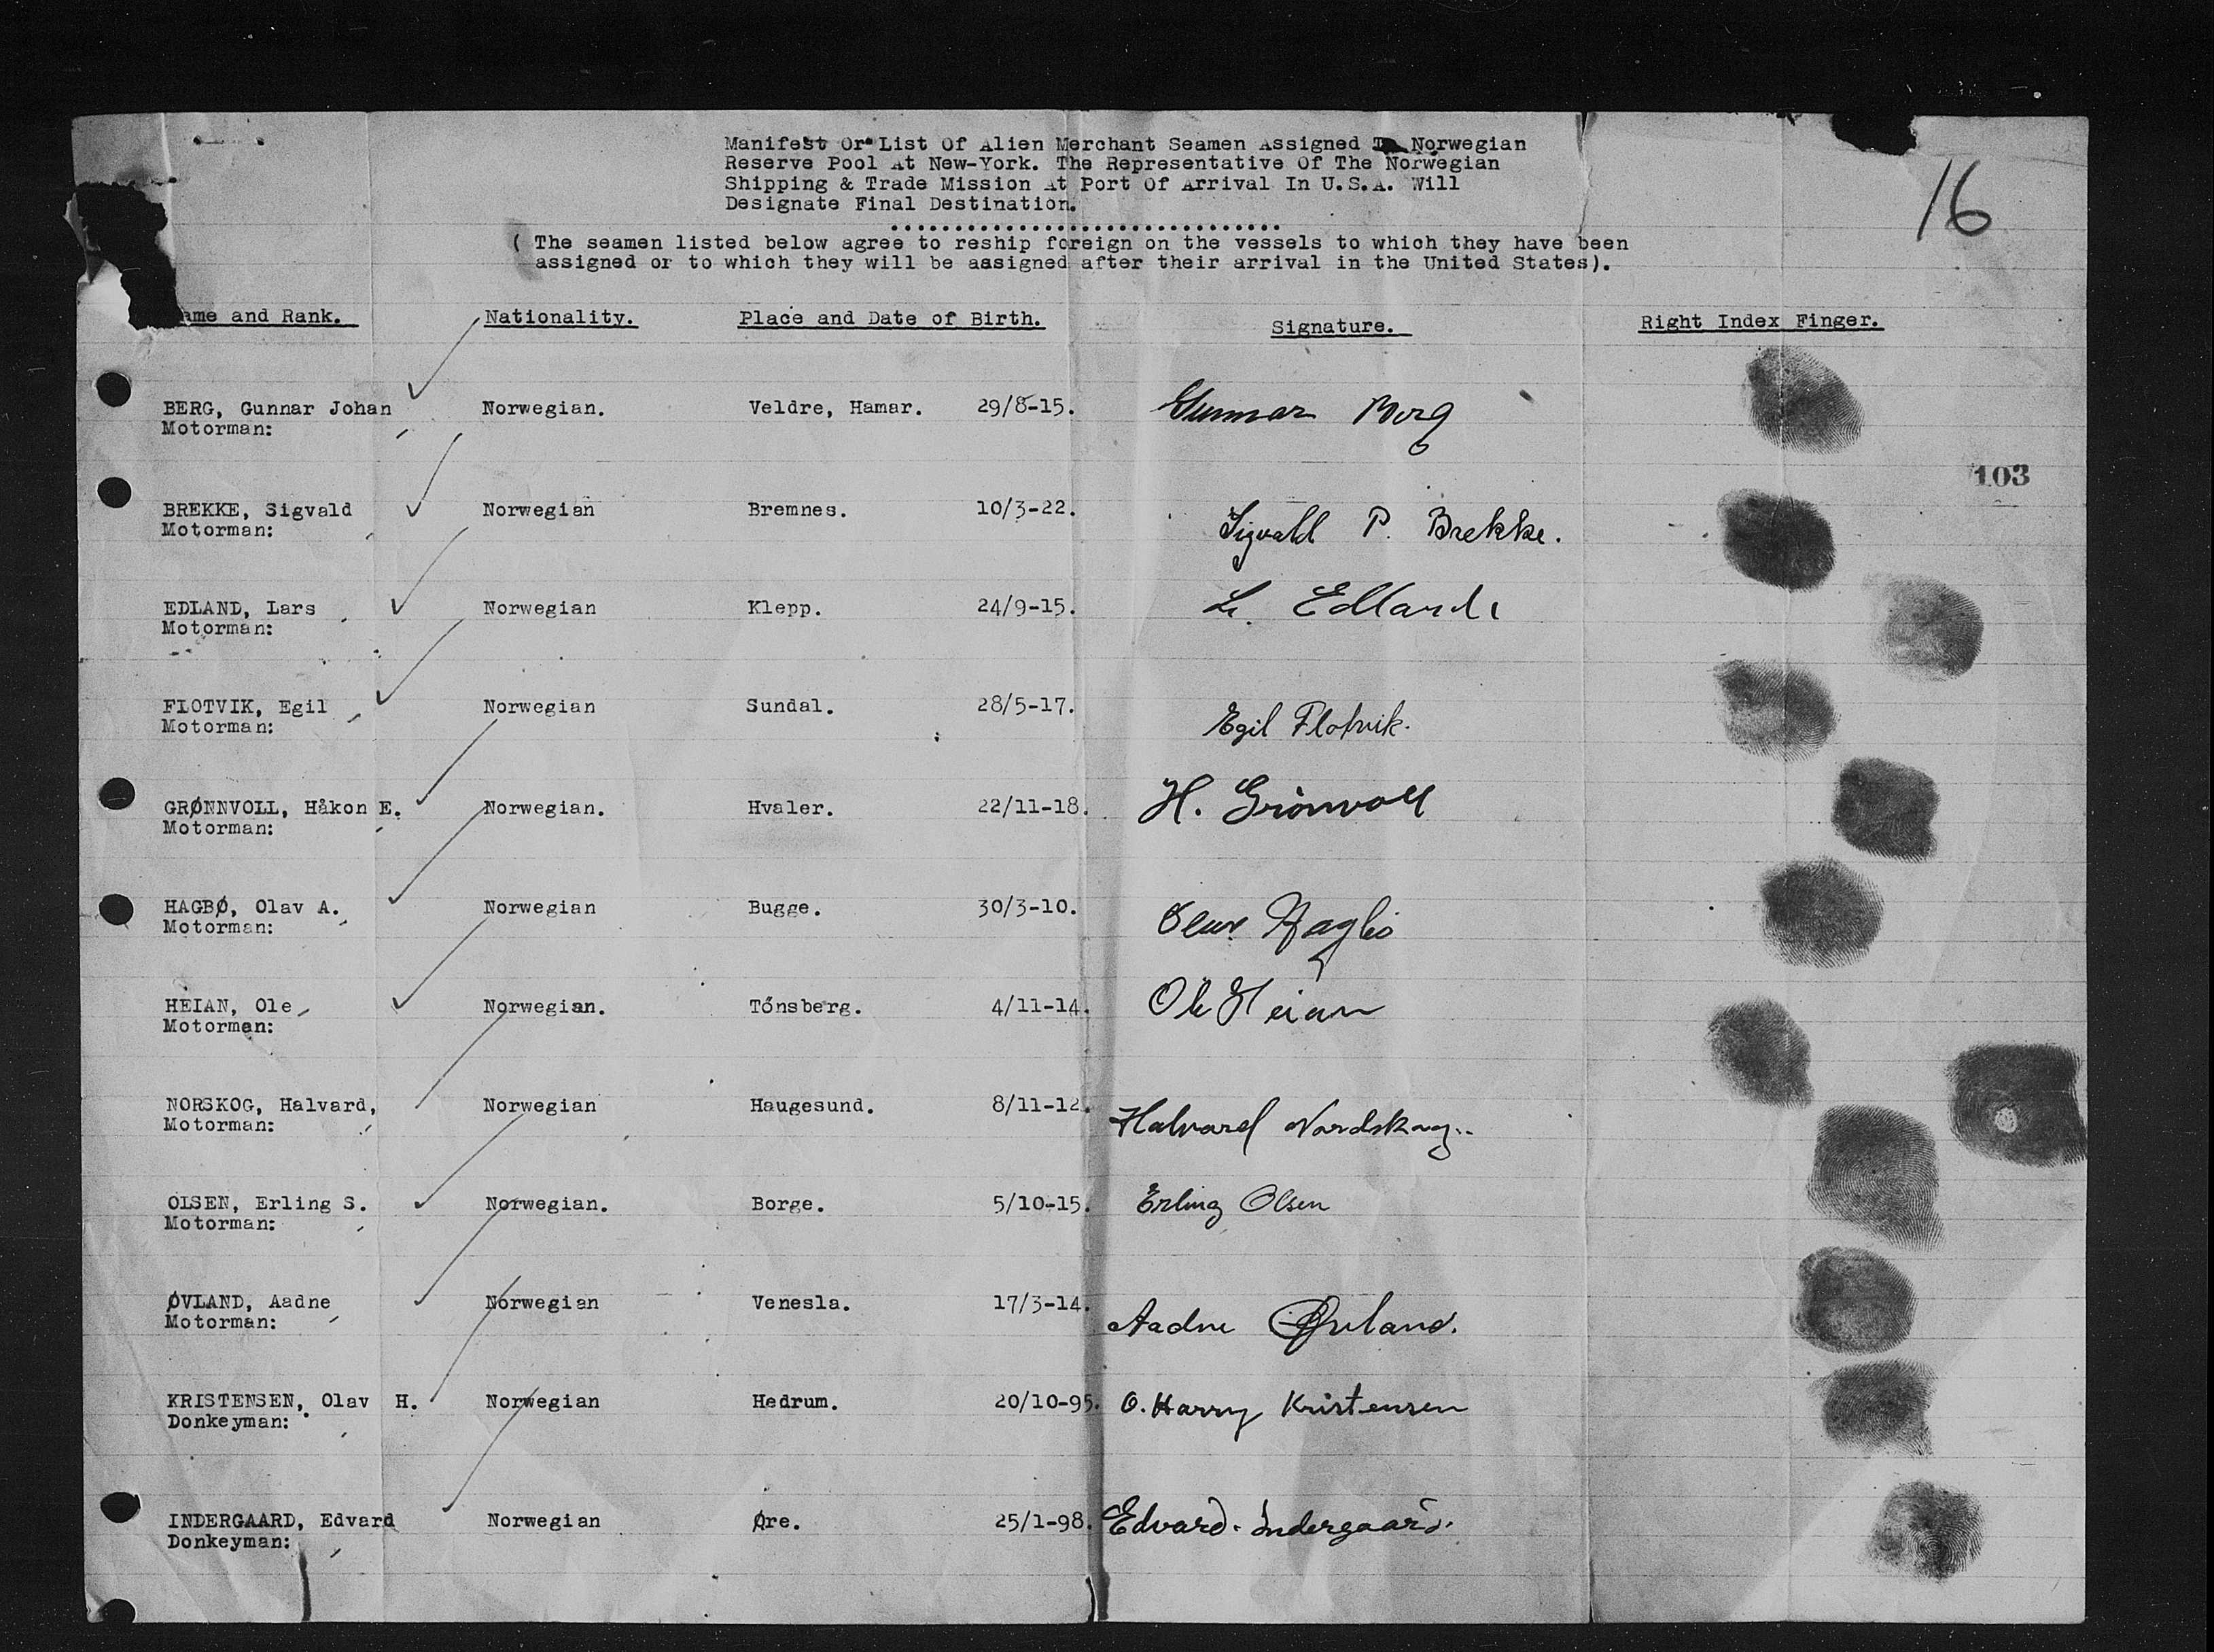 Manifest Or List Of Alien Merchant Seamen Assigned To Norwegian
Reserve Pool At New-York. The Representative Of The Norwegian
Shipping & Trade Mission At Port Of Arrival In U.S.A. Will
Designate Final Destination.
16
( The seamen listed below agree to reship foreign on the vessels to which they have been
assigned or to which they will be assigned after their arrival in the United States).
ame and Rank. Nationality. Place and Date of Birth. Signature. Right Index Finger.
BERG, Gunnar Johan Norwegian. Veldre, Hamar. 29/8-15. Gunnar Berg
Motorman:
103
BREKKE, Sigvald Norwegian Bremnes. 10/3-22. Sigvald P. Brekke.
Motorman:
EDLAND, Lars Norwegian Klepp. 24/9-15. L. Edland
Motorman:
FLOTVIK, Egil Norwegian Sundal. 28/5-17. Egil Flotvik.
Motorman:
GRØNNVOLL, Håkon E. Norwegian. Hvaler. 22/11-18. H. Grönvoll
Motorman:
HAGBØ, Olav A. Norwegian Bugge. 30/3-10. Olav Hagbö
Motorman:
HEIAN, Ole Norwegian. Tőnsberg. 4/11-14. Ole Heian
Motorman:
NORSKOG, Halvard, Norwegian Haugesund. 8/11-12. Halvard Nordskog..
Motorman:
OLSEN, Erling S. Norwegian. Borge. 5/10-15. Erling Olsen
Motorman:
ØVLAND, Aadne Norwegian Venesla. 17/3-14. Aadne Øvland.
Motorman:
KRISTENSEN, Olav H. Norwegian Hedrum. 20/10-95. O. Harry Kristensen
Donkeyman:
INDERGAARD, Edvard Norwegian Øre. 25/1-98. Edvard. Indergaard.
Donkeyman: